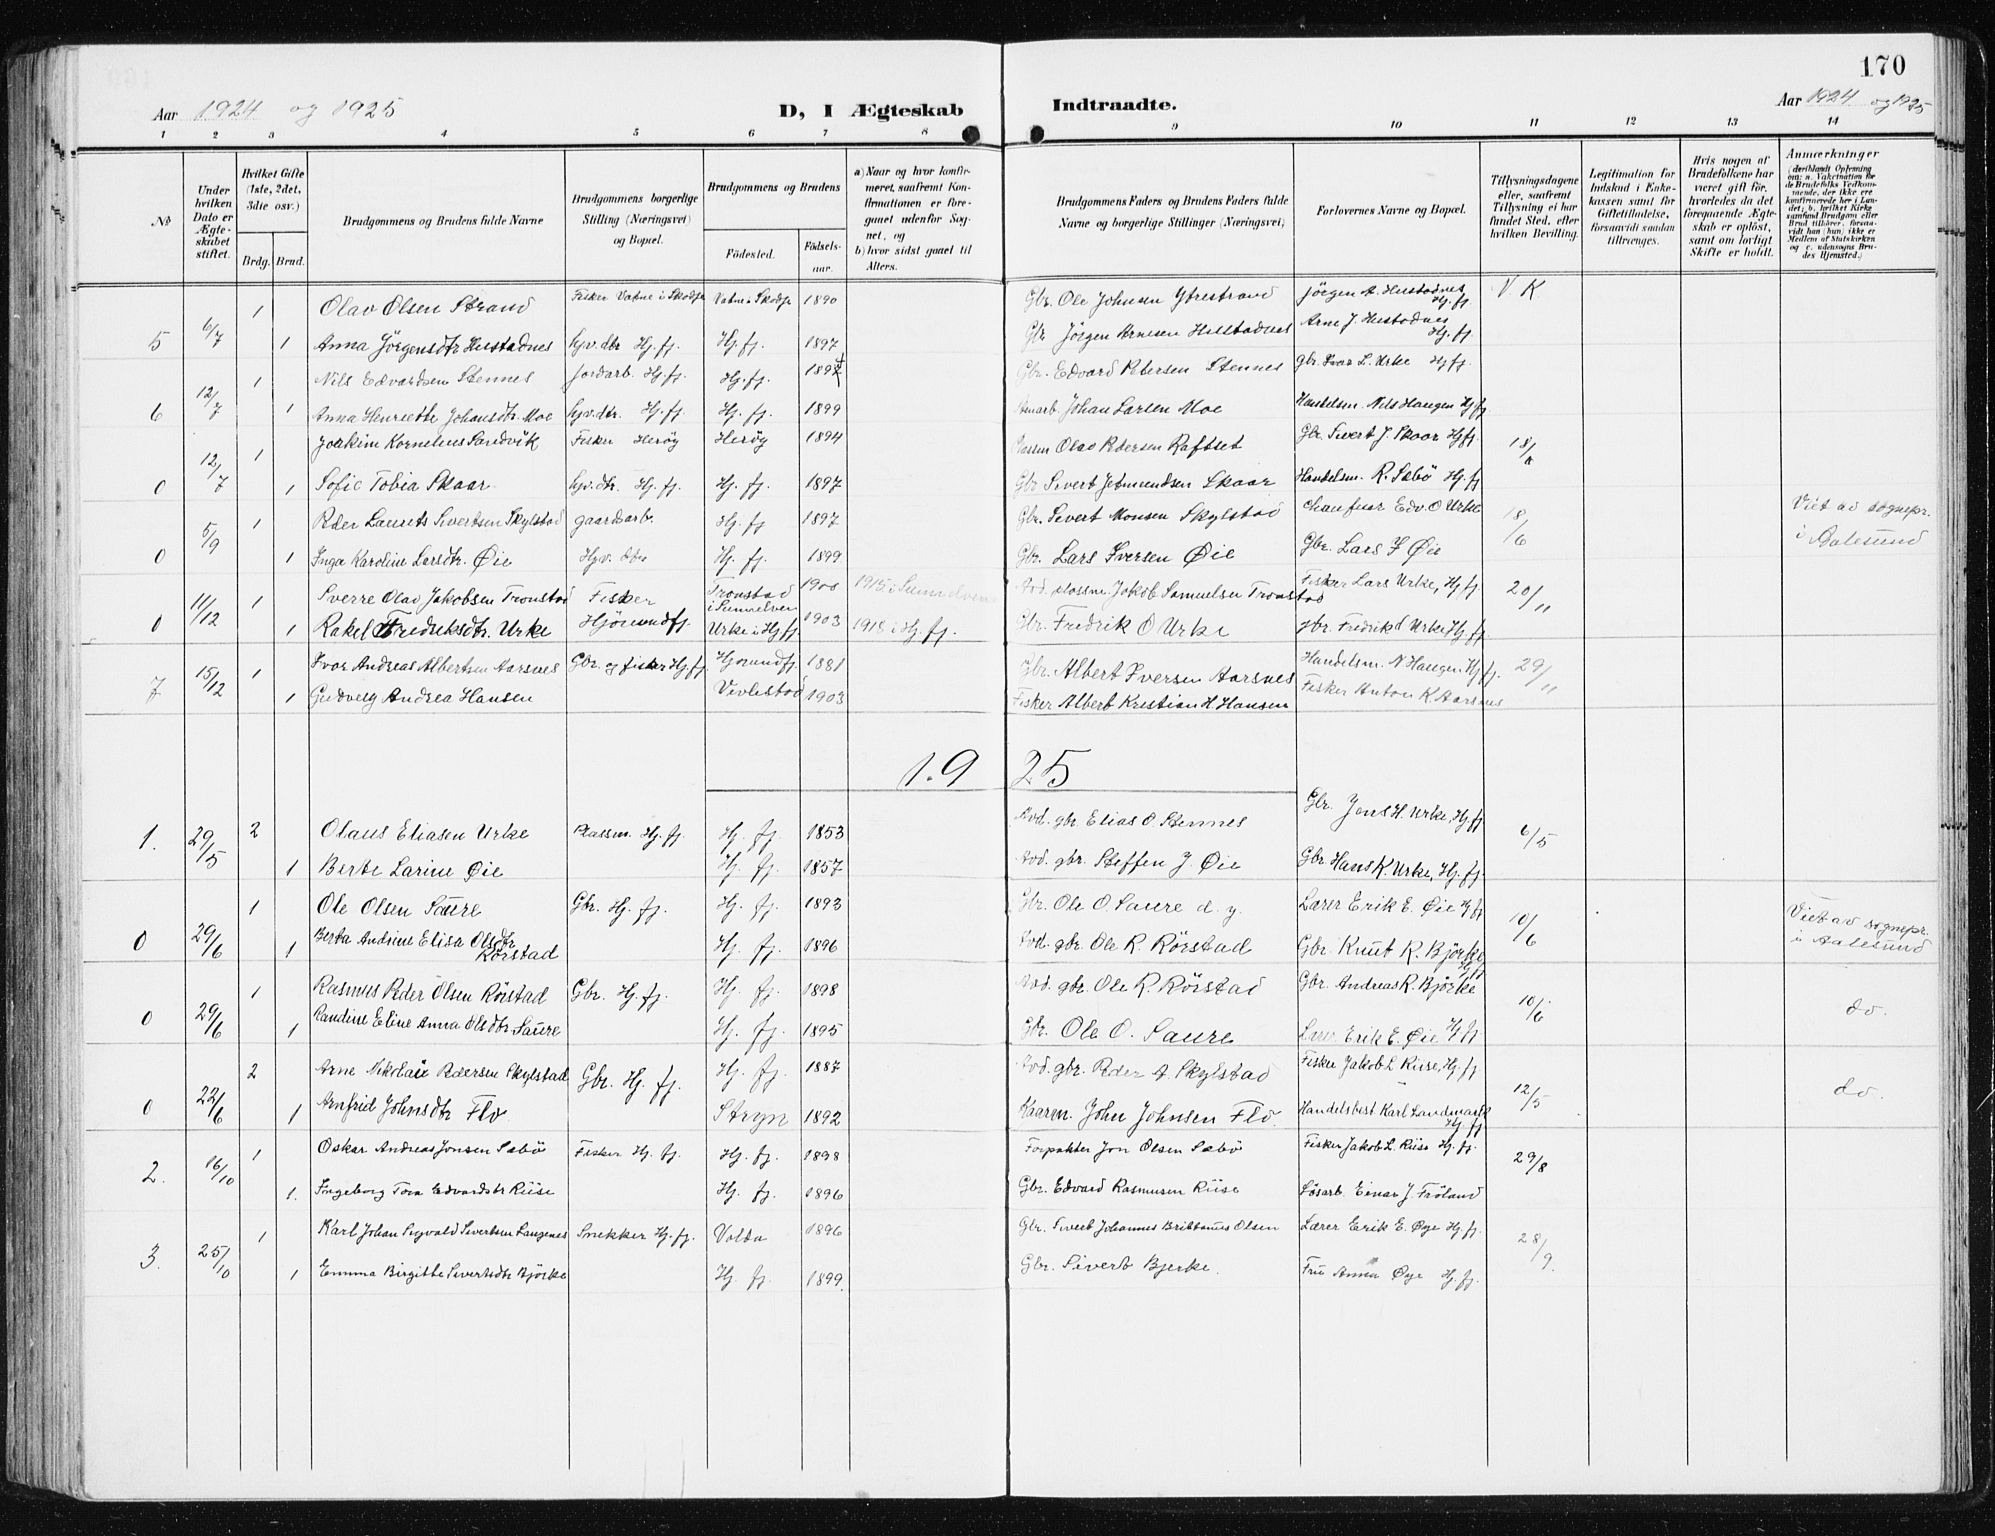 170
Aar 1924 og 1925 D, I Ægteskab Indtraadte. Aar 1924 og 1925
1 2 3 4 5 6 7 8 9 10 11 12 13 14
№
Under hvilken Dato er Ægteskabet stiftet.
Hvilket Gifte (1ste, 2det, 3die osv.)
Brdg. Brud.
Brudgommens og Brudens fulde Navne
Brudgommens borgerlige Stilling (Næringsvei) og Bopæl.
Brudgommens og Brudens
Födested. Födselsaar.
a) Naar og hvor konfirmeret, saafremt Konfirmationen er foregaaet udenför Sognet, og
b) hvor sidst gaaet til Alters.
Brudgommens Faders og Brudens Faders fulde Navne og borgerlige Stillinger (Næringsvei)
Forlovernes Navne og Bopæl.
Tillysningsdagene eller, saafremt Tillysning ei har fundet Sted, efter hvilken Bevilling.
Legitimation for Indskud i Enkekassen samt for Giftetilladelse, forsaavidt saadan tiltrænges.
Hvis nogen af Brudefolkene har været gift för, hvorledes da det foregaaende Ægteskab er oplöst, samt om lovligt Skifte er holdt.
Anmærkninger
5 6/7 1 Olav Olsen Strand Fisker Vatne i Skodje Vatne i Skodje 1890 Gbr. Ole Johnsen Ytrestrand Jörgen A. Hustadnes Hj.fj. V K
1 Anna Jörgensdtr Hustadnes hjv. dtr Hj. fj. Hj. fj. 1897 Gbr. Jörgen Arnesen Hustadnes Arne J. Hustadnes Hj. fj.
6 12/7 1 Nils Edvardsen Stennes Jordarb. Hj. fj. Hj. fj. 1897 Gbr. Edvard Petersen Stennes Gbr. Ivar L. Urke Hj fj.
1 Anna Henriette Johansdtr. Moe hjv. dtr. Hj. fj. Hj. fj. 1899 Johan Larsen Moe Handelsm. Nils Haugen Hj. fj
0 12/7 1 Joakim Kornelius Sandvik Fisker Heröy Heröy 1894 Olav Pedersen Raftset Gbr. Sivert J. Skaar Hj fj. 18/
1 Sofie Tobia Skaar hjv. dtr. Hj. fj. Hj. fj. 1897 Gbr Sivert Jetmundsen Skaar Handelsm. R. Sæbö Hj. fj
0 5/9 1 Peder Laurits Sivertsen Skylstad gaardsarb. Hj. fj 1897 Gbr. Sivert Monsen Skylstad Chaufuar Edv. O Urke 18/6 Viet av sognepr. i Aalesund
1 Inga Karoline Larsdtr. Øie Hjv. dtr Hj. fj. 1899 Gbr. Lars Iversen Øie Gbr. Lars I Øie
0 11/12 1 Sverre Olav Jakobsen Tronstad Fisker Tronstad i Sunnelven 1900 1915 i Sunnelven Jakob Samuelsen Tronstad Fisker Lars Urke, Hj. fj. 20/11
1 Rakel Fredriksdtr. Urke Hjörundfj. Urke i Hj. fj. 1903 1918 i Hj. fj. Gbr. Fredrik O Urke Gbr. Fredrik O Urke, Hj. fj.
7 15/12 1 Ivar Andreas Albertsen Aarsnes Gbr. og fisker Hj. fj. Hjörundfj. 1881 Gbr. Albert Iversen Aarsnes Handelsm. N Haugen Hj fj. 29/11
1 Gudveig Andrea Hansen 1903 Fisker Albert Kristian H Hansen Fisker Anton K. Aarsnes
1925
1. 29/5 2 Olaus Eliasen Urke Plassm. Hj. fj. Hj. fj. 1853 Avd. gbr. Elias O. Stennes Gbr. Jens H. Urke, Hj. fj 6/5
1 Berte Larine Øie Hj. fj. 1857 Avd. gbr. Steffen J. Øie Gbr. Hans K. Urke, Hj. fj.
0 29/6 1 Ole Olsen Saure Gbr. Hj. fj. Hj. fj. 1893 Gbr. Ole O. Saure d. y. Lærer Erik E. Øie Hj fj 10/6 Viet av sognepr. i Aalesund
1 Berta Andrine Elisa Olsdtr. Rörstad Hj. fj. 1896 Avd. gbr. Ole R. Rörstad Gbr. Knut R. Björke Hj fj
0 29/6 1 Rasmus Peder Olsen Rörstad Gbr. Hj. fj. Hj. fj. 1898 Avd. gbr. Ole R. Rörstad Gbr. Andreas R. Björke 10/6 do.
1 Pandine Eline Anna Olsdtr Saure Hj. fj. 1895 Gbr. Ole O. Saure Lærer Erik E. Øie Hj fj.
0 22/6 2 Arne Nikolai Pedersen Skylstad Gbr. Hj. fj. Hj. fj. 1887 Avd. gbr. Peder A. Skylstad Fisker Jakob L. Riise, Hj. fj 12/5 do.
1 Arnfrid Johnsdtr Flo Stryn 1892 Kaarm. John Johnsen Flo. Handelsbest. Karl Landmark Hj. fj
2. 16/10 1 Oskar Andreas Jonsen Sæbö Fisker Hj. fj. Hj. fj. 1898 Forpakter Jon Olsen Sæbö Fisker Jakob L. Riise Hj. fj. 29/8
1. Ingeborg Tora Edvardsdtr Riise Hj. fj. 1896 Gbr. Edvard Rasmusen Riise Lösarb. Einar J. Fröland
3. 25/10 1 Karl Johan Sigvald Sivertsen Langenes Snekker Hj. fj. Volda 1896 Gbr. Sivert Johannes Olsen Lærer Erik E. Øye Hj. fj. 28/9.
1 Emma Birgitte Sivertsdtr Björke Hj. fj. 1899. Gbr. Sivert Bjerke. Fru Anna Øye Hj. fj.